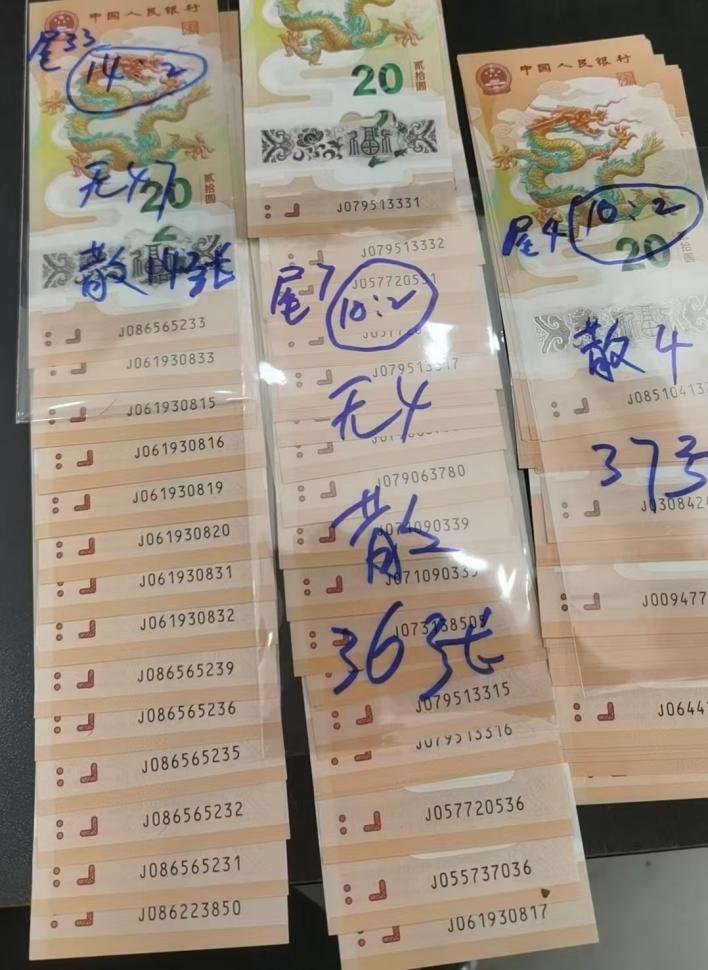 中国人民银行
尾33
14:2
无47
贰拾圆
20
散14张
J086565233
J061930833
J061930815
J061930816
J061930819
J061930820
J061930831
J061930832
J086565239
J086565236
J086565235
J086565232
J086565231
J086223850
贰拾圆
20
J079513331
J079513332
尾7
10:2
无4
J079063780
散
36张
J079513315
J079513316
J057720536
J055737036
J061930817
中国人民银行
尾4
10:2
20
散4
37
J06441